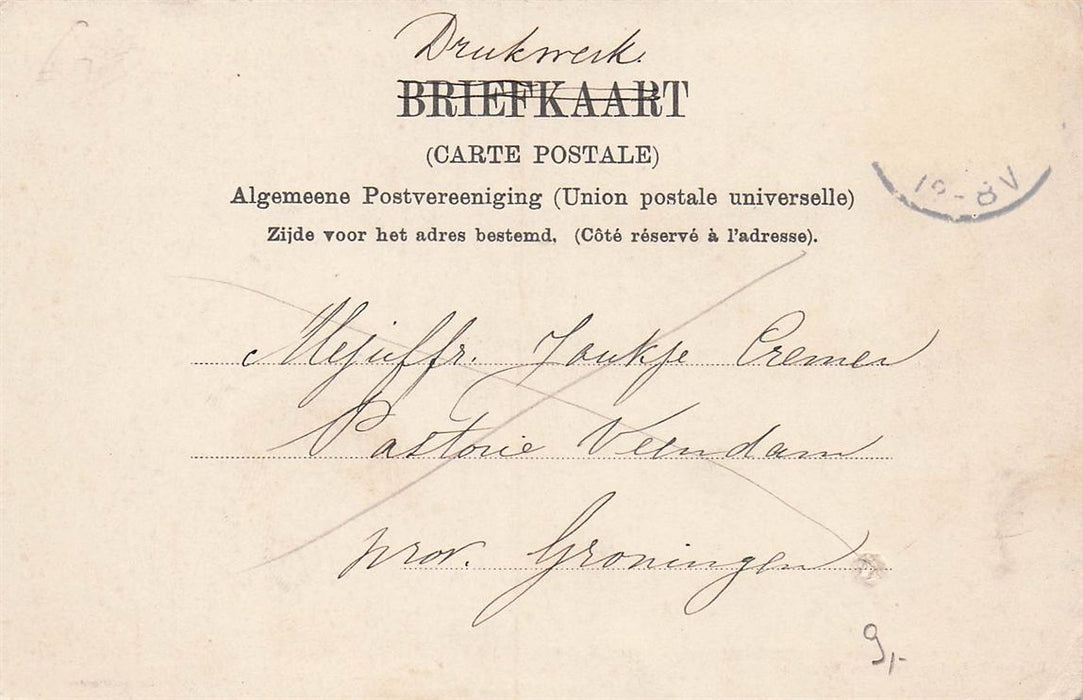 Drukwerk.
BRIEFKAART
(CARTE POSTALE)
Algemeene Postvereeniging (Union postale universelle)
Zijde voor het adres bestemd. (Côté réservé à l'adresse).
12-8V
Mejuffr. Joukje Cremer
Pastorie Veendam
prov. Groningen
9,-